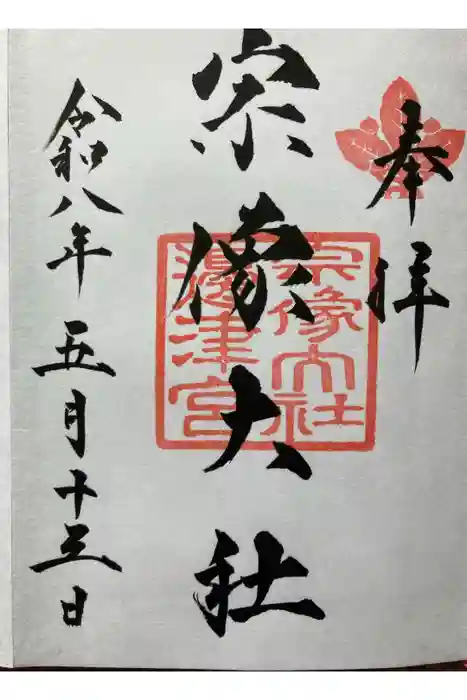 奉拝
宗像大社
宗像大社
邊津宮
令和八年五月十三日